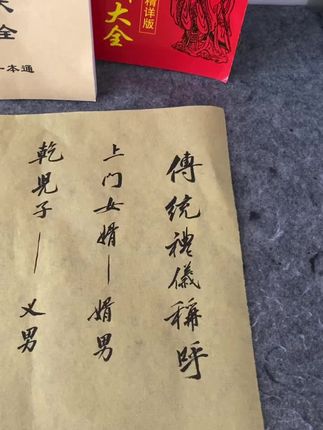 傳統禮儀稱呼
上门女婿—婿男
乾兒子—义男
大全
一本通
大全
精详版